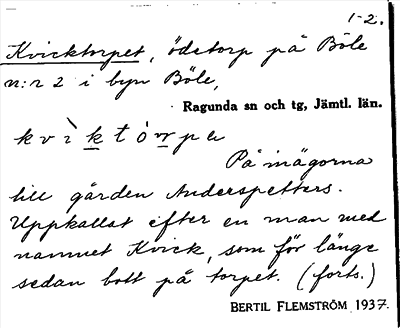 1-2.
Kvicktorpet, ödetorp på Böle
n:r 2 i byn Böle,
Ragunda sn och tg, Jämtl. län.
På inägorna
till gården Anderspetters.
Uppkallat efter en man med
namnet Kvick, som för länge
sedan bott på torpet. (forts.)
BERTIL FLEMSTRÖM 1937.